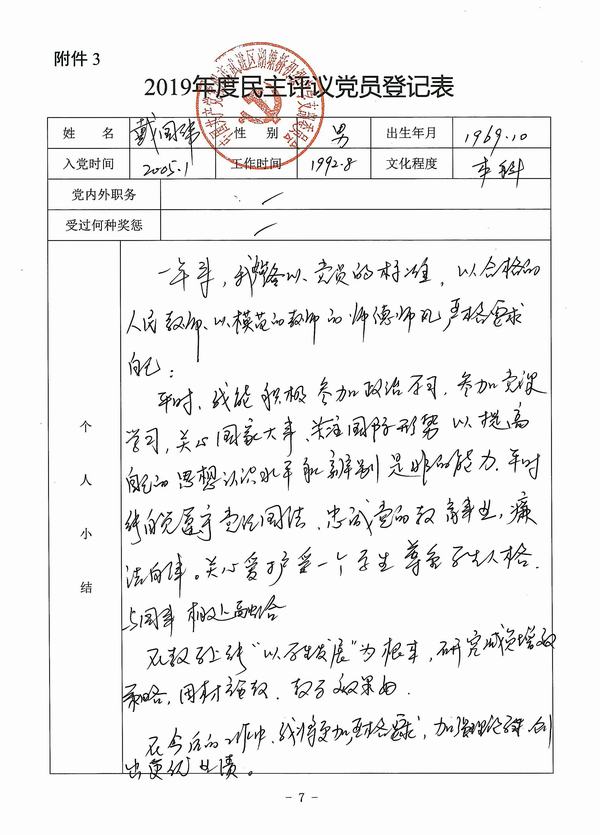 附件 3
2019年度民主评议党员登记表
姓 名 戴国强 性 别 男 出生年月 1969.10
入党时间 2005.1 工作时间 1992.8 文化程度 本科
党内外职务 /
受过何种奖惩 /
个人小结
一年来，我严格以党员的标准，以合格的
人民教师、以模范的教师的师德师风严格要求
自己：
平时，我能积极参加政治学习，参加党课
学习，关心国家大事、关注国际形势以提高
自己的思想认识水平和辨别是非的能力。平时
能自觉遵守党纪国法、忠诚党的教育事业，廉
洁自律。关心爱护每一个学生尊重学生人格．
与同事相处融洽
在教学上能"以学生发展"为根本，研究减负增效
策略，因材施教．教学效果好．
在今后的工作中，我将更加严格要求，加强理论学习创
出更优业绩。
- 7 -